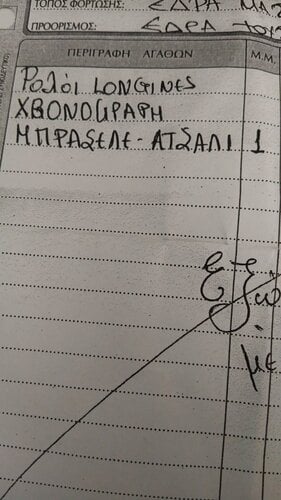 ΤΟΠΟΣ ΦΟΡΤΩΣΗΣ: ΕΔΡΑ ΜΑΣ
ΠΡΟΟΡΙΣΜΟΣ: ΕΔΡΑ ΤΟΥΣ
ΠΕΡΙΓΡΑΦΗ ΑΓΑΘΩΝ Μ.Μ.
Ρολόι LONGINES
ΧΡΟΝΟΓΡΑΦΗ
ΜΠΡΑΣΕΛΕ-ΑΤΣΑΛΙ 1
με